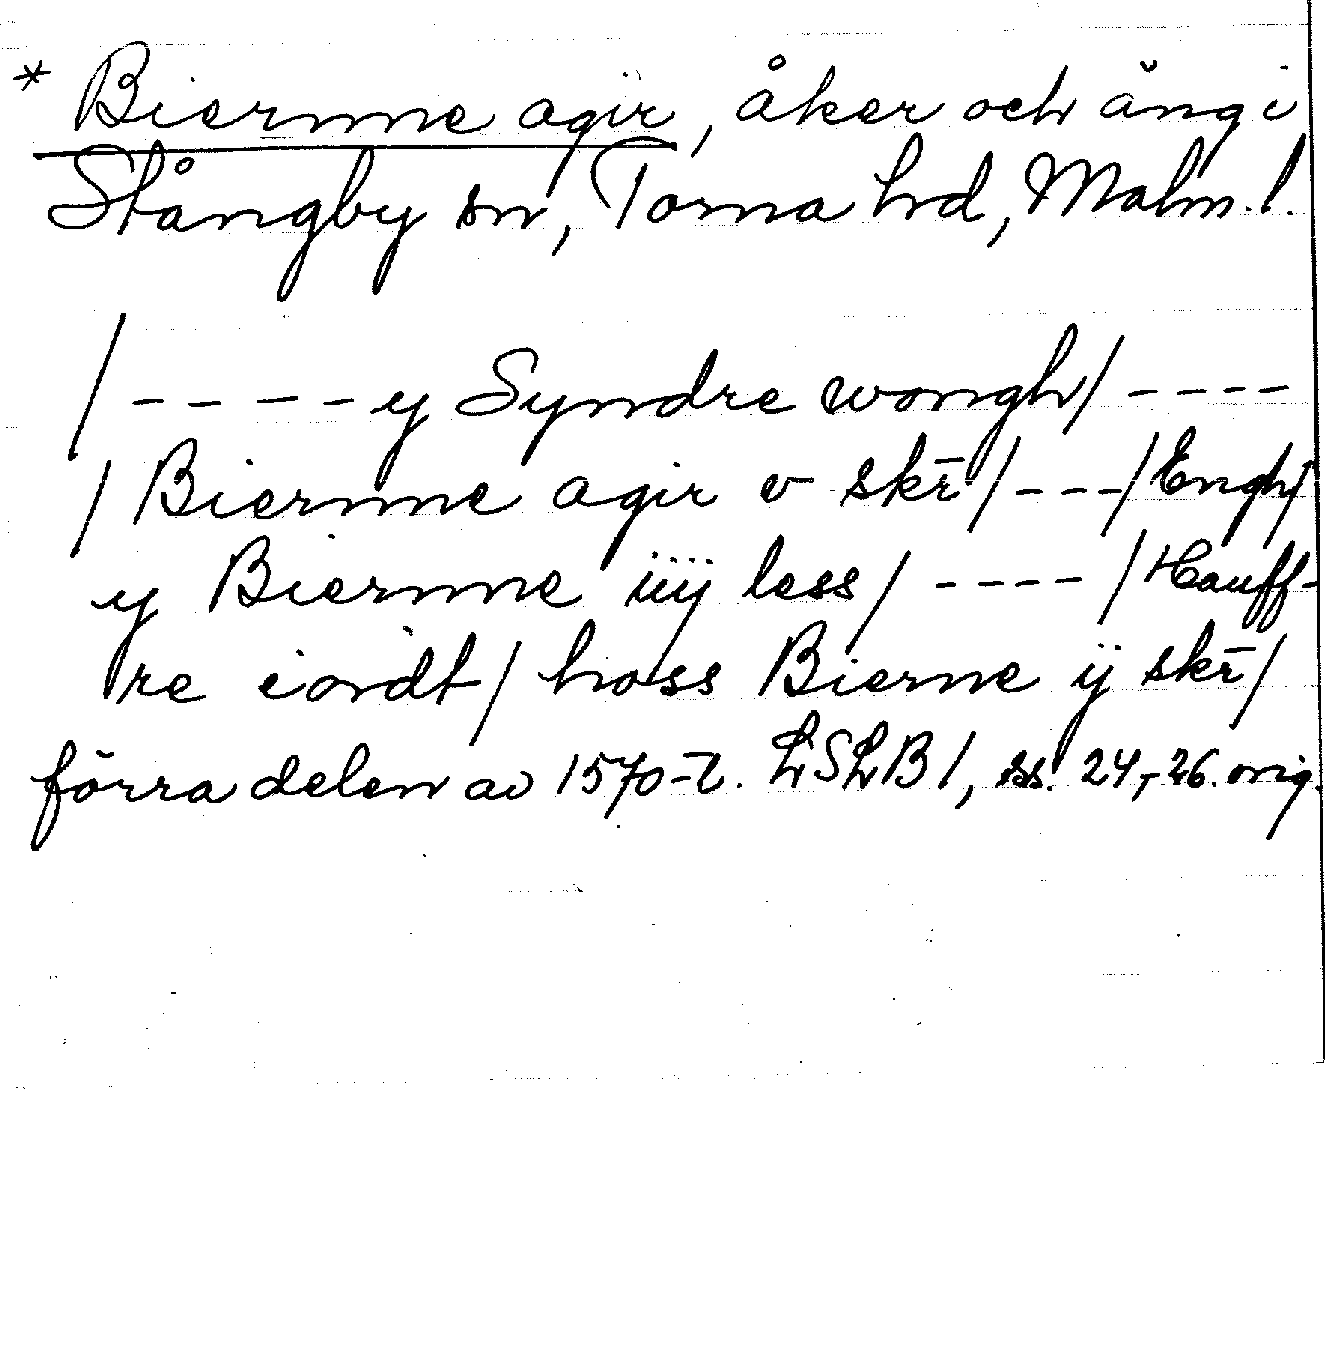 * Biernne agir, åker och äng i
Stångby sn, Torna hd, Malm. l.
/ - - - - y Syndre wongh / - - - -
/ Biernne agir v skr̄ / - - - / Engh /
y Biernne iiij less / - - - - / Hauff-
re iordt / hoss Bierne ij skr̄ /
förra delen av 1570-t. LSLB 1, ss. 24, 26. orig.